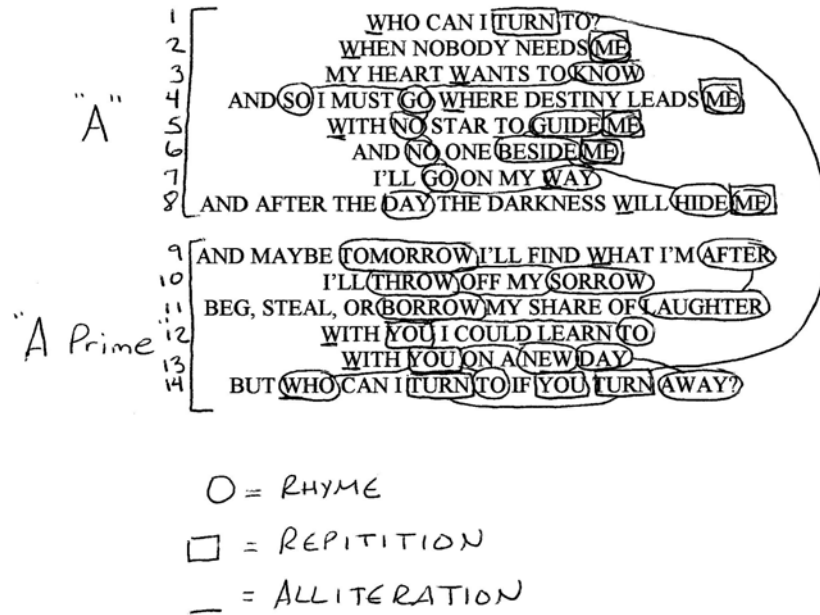 1 WHO CAN I TURN TO?
2 WHEN NOBODY NEEDS ME
3 MY HEART WANTS TO KNOW
"A" 4 AND SO I MUST GO WHERE DESTINY LEADS ME
5 WITH NO STAR TO GUIDE ME
6 AND NO ONE BESIDE ME
7 I'LL GO ON MY WAY
8 AND AFTER THE DAY THE DARKNESS WILL HIDE ME
9 AND MAYBE TOMORROW I'LL FIND WHAT I'M AFTER
10 I'LL THROW OFF MY SORROW
11 BEG, STEAL, OR BORROW MY SHARE OF LAUGHTER
"A Prime" 12 WITH YOU I COULD LEARN TO
13 WITH YOU ON A NEW DAY
14 BUT WHO CAN I TURN TO IF YOU TURN AWAY?
O = RHYME
□ = REPITITION
_ = ALLITERATION